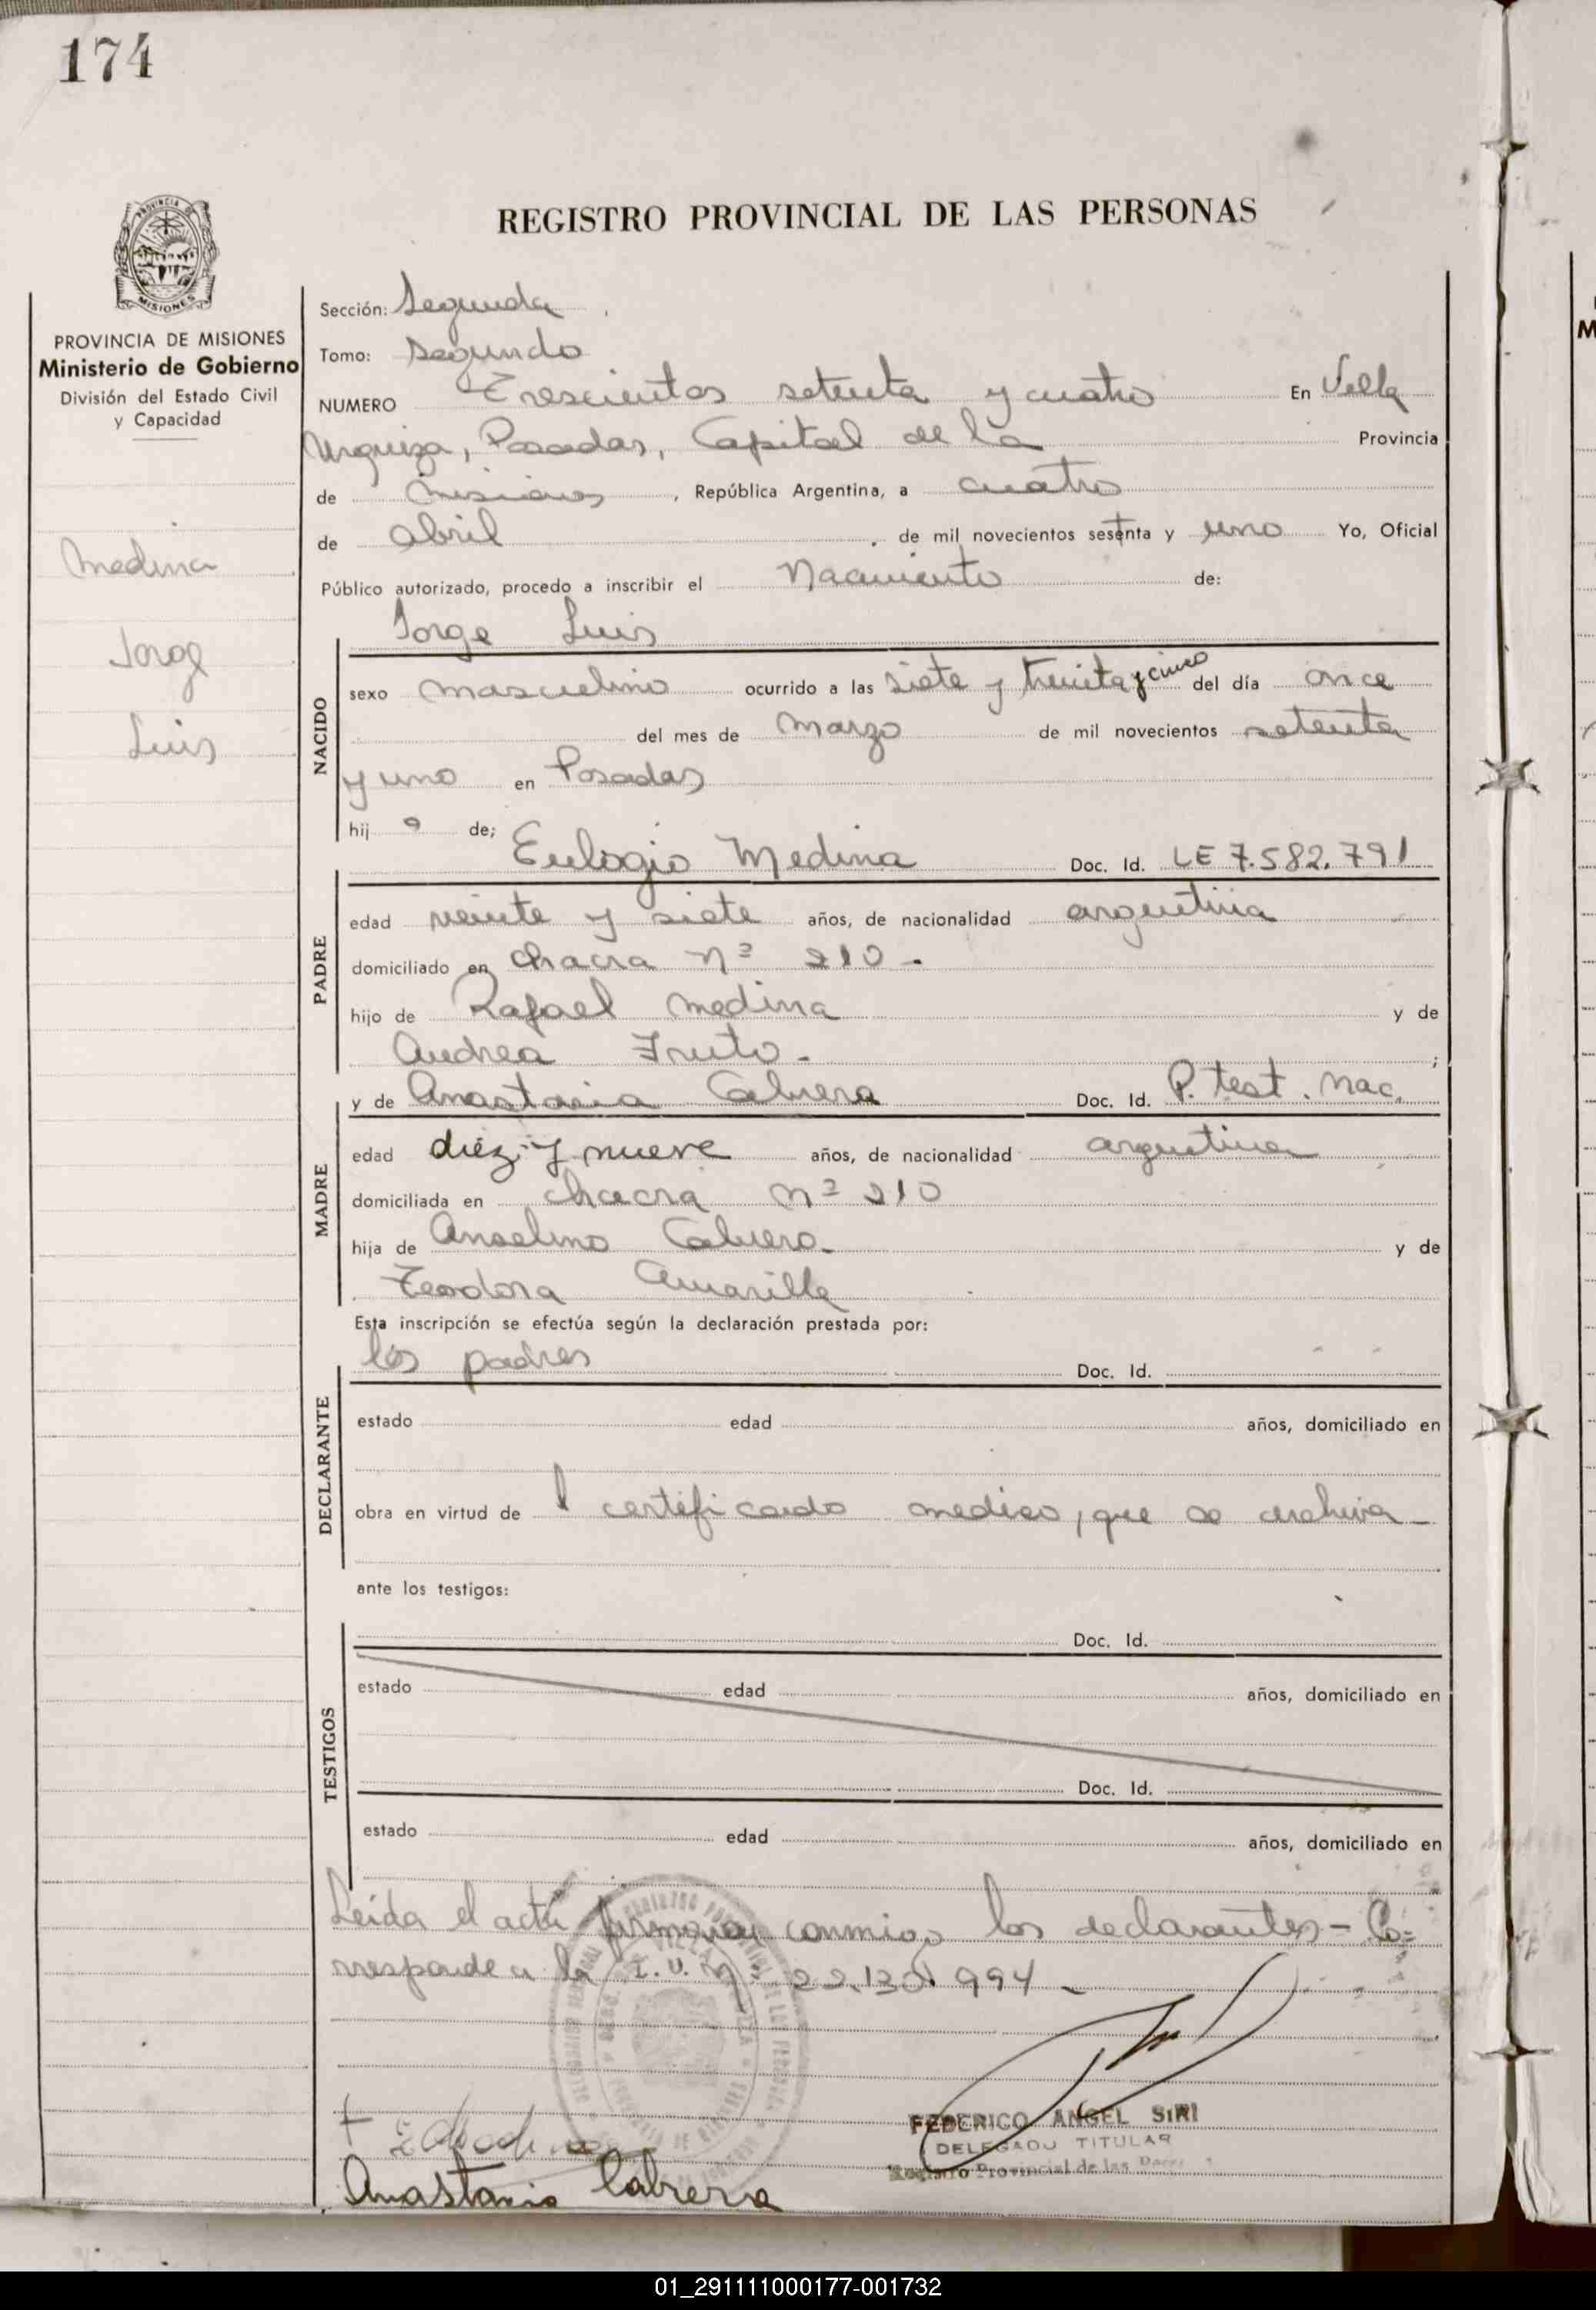 174
REGISTRO PROVINCIAL DE LAS PERSONAS
PROVINCIA DE
MISIONES
PROVINCIA DE MISIONES
Ministerio de Gobierno
División del Estado Civil
y Capacidad
Medina
Jorge
Luis
Sección: Segunda
Tomo: Segundo
NUMERO Trescientos setenta y cuatro En Villa
Urquiza, Posadas, Capital de la Provincia
de Misiones, República Argentina, a cuatro
de abril de mil novecientos setenta y uno Yo, Oficial
Público autorizado, procedo a inscribir el Nacimiento de:
Jorge Luis
NACIDO
sexo masculino ocurrido a las siete y treinta y cinco del día once
del mes de marzo de mil novecientos setenta
y uno en Posadas
hijo de; Eulogio Medina Doc. Id. LE 7.582.791
PADRE
edad veinte y siete años, de nacionalidad argentina
domiciliado en chacra nº 210.-
hijo de Rafael Medina y de
Andrea Fruto.- ;
y de Anastacia Cabrera Doc. Id. P. test. Nac.
MADRE
edad diez y nueve años, de nacionalidad argentina
domiciliada en chacra nº 210
hija de Anselmo Cabrera.- y de
Teodora Amarilla
Esta inscripción se efectúa según la declaración prestada por:
los padres Doc. Id.
DECLARANTE
estado edad años, domiciliado en
obra en virtud de certificado medico, que se archiva -
ante los testigos:
Doc. Id.
TESTIGOS
estado edad años, domiciliado en
Doc. Id.
estado edad años, domiciliado en
Leida el acta firman conmigo los declarantes - Co=
rresponde a la L.U. Nº 22.130.994 -
FEDERICO ANGEL SIRI
DELEGADO TITULAR
Registro Provincial de las
Anastacia Cabrera
01_291111000177-001732